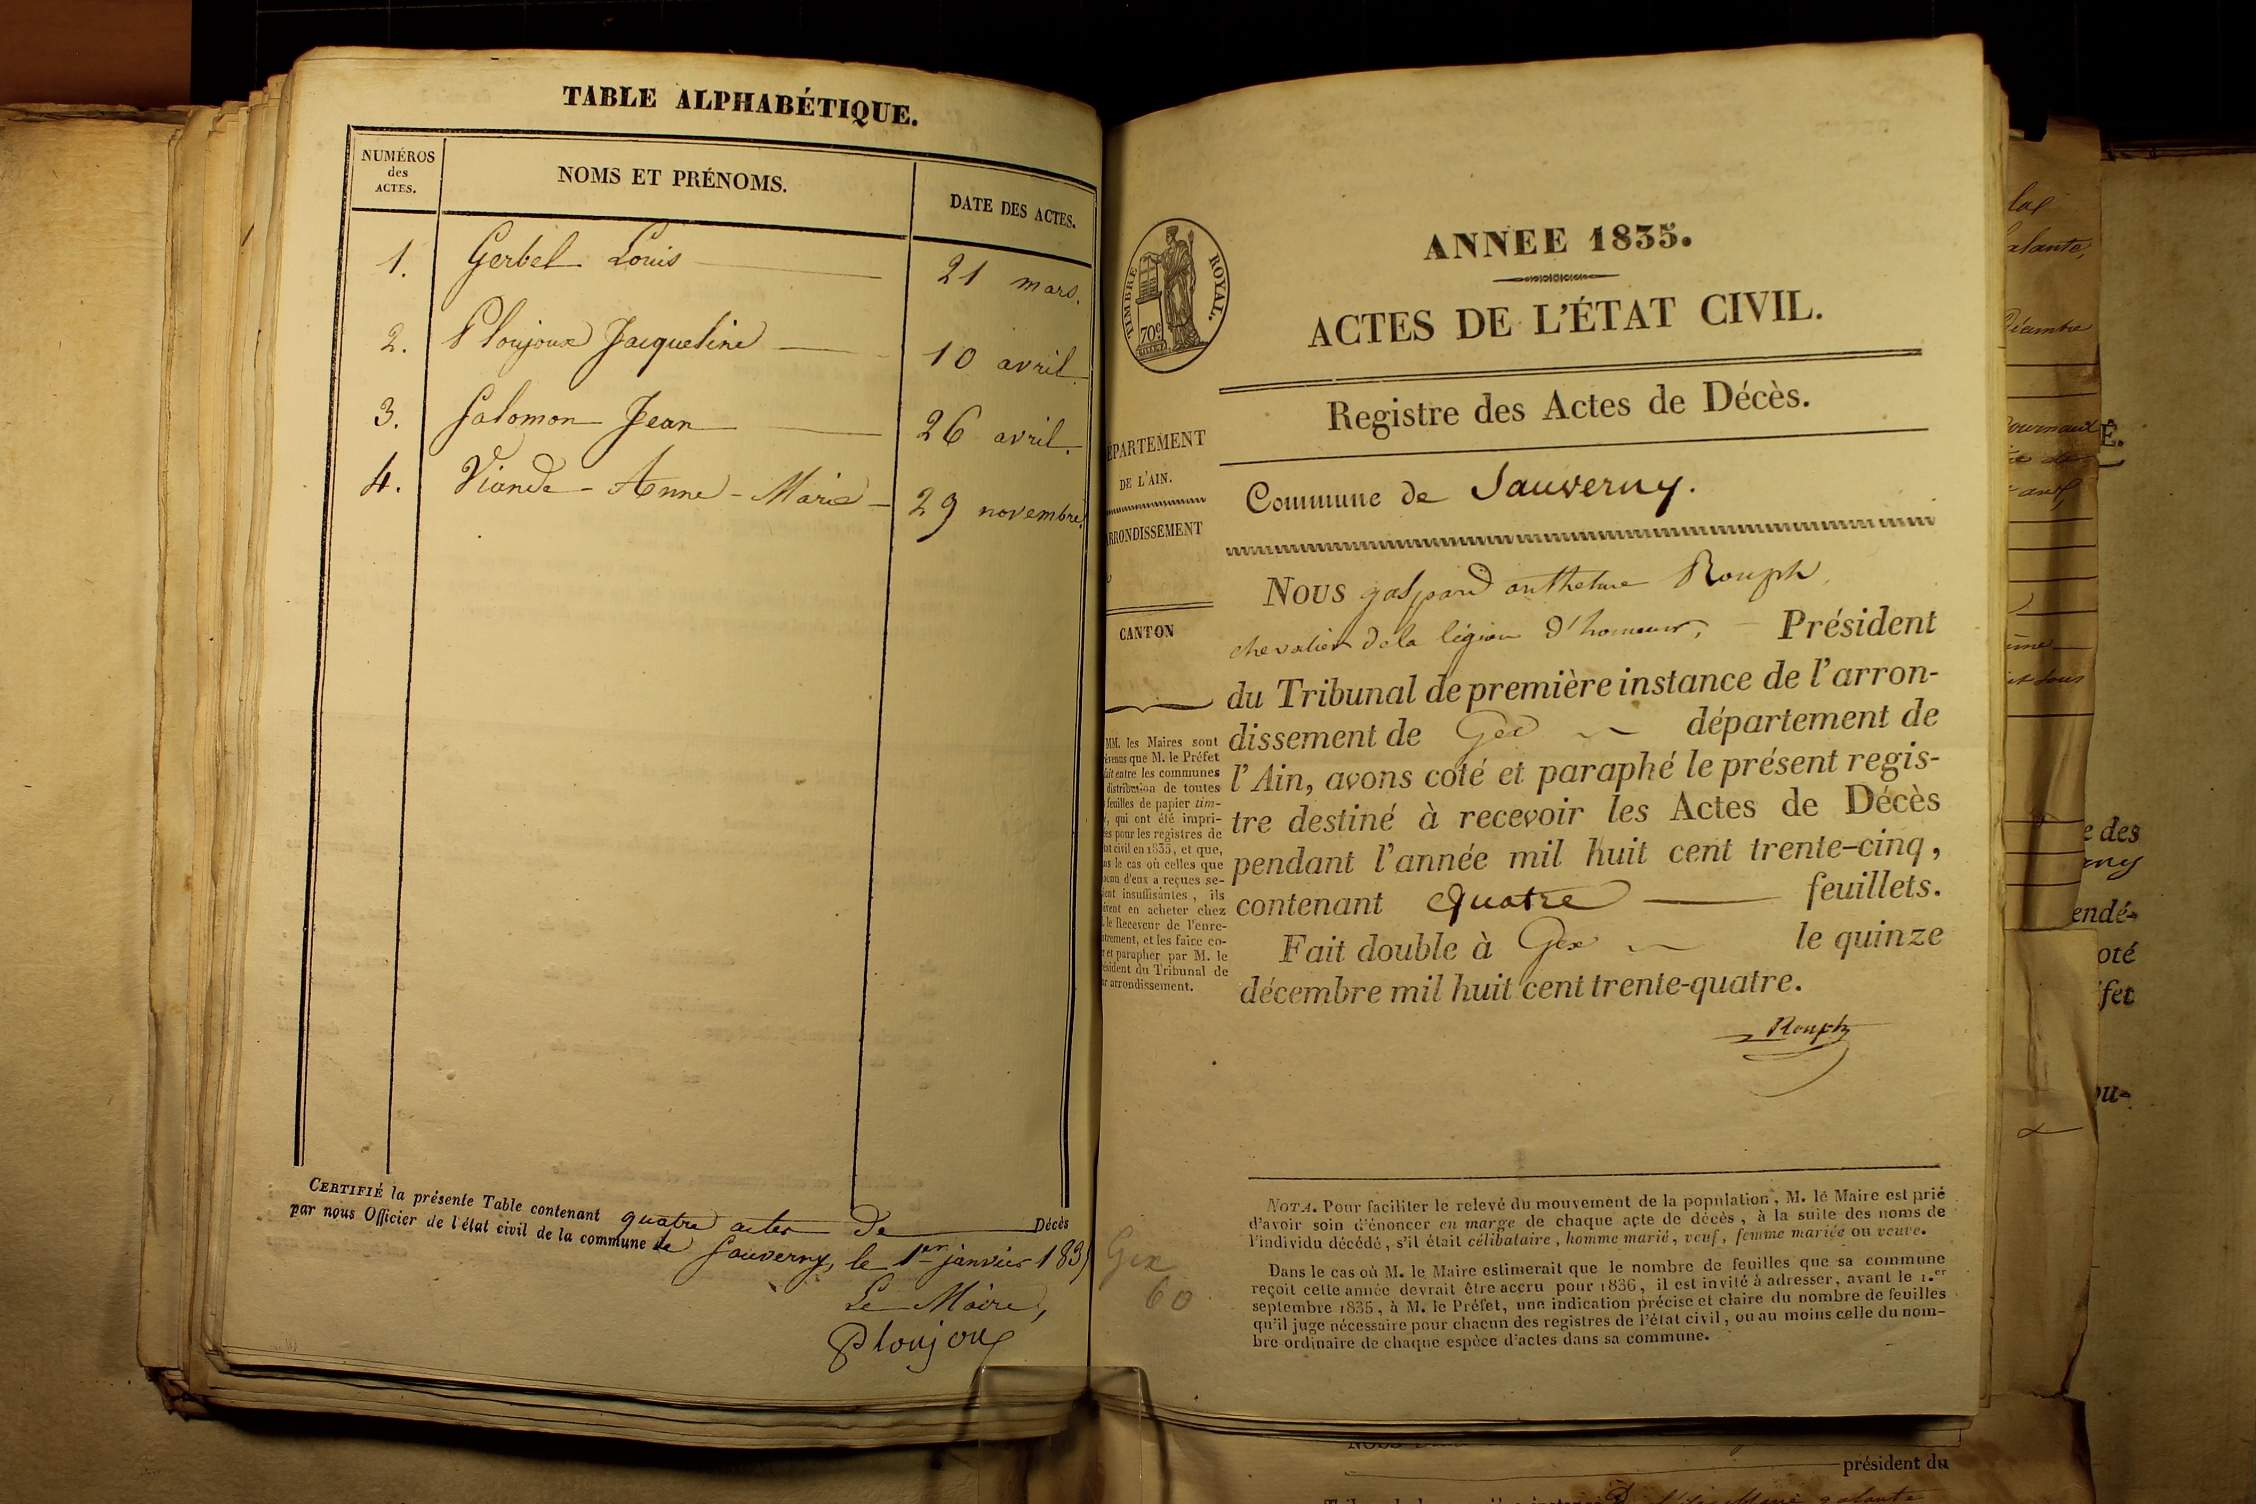 TABLE ALPHABÉTIQUE.
NUMÉROS
des
ACTES.
NOMS ET PRÉNOMS.
DATE DES ACTES.
1. Gerbel Louis 21 mars.
2. Ploujoux Jacqueline 10 avril.
3. Salomon Jean 26 avril.
4. Viande - Anne - Marie - 29 novembre.
CERTIFIÉ la présente Table contenant quatre actes de Décès
par nous Officier de l'état civil de la commune de Sauverny, le 1er janvier 183
Le Maire,
Ploujoux
TIMBRE ROYAL.
70c
ANNEE 1835.
ACTES DE L'ÉTAT CIVIL.
Registre des Actes de Décès.
Commune de Sauverny.
EPARTEMENT
DE L'AIN.
RRONDISSEMENT
CANTON
MM. les Maires sont
évenus que M. le Préfet
fait entre les communes
distribution de toutes
feuilles de papier tim-
, qui ont été impri-
es pour les registres de
at civil en 1835, et que,
ns le cas où celles que
acun d'eux a reçues se-
ient insuffisantes, ils
ivent en acheter chez
. le Receveur de l'enre-
strement, et les faire co-
r et parapher par M. le
ésident du Tribunal de
ur arrondissement.
NOUS gaspard anthelme Rouph
chevalier de la légion d'honneur, Président
du Tribunal de première instance de l'arron-
dissement de Gex département de
l'Ain, avons coté et paraphé le présent regis-
tre destiné à recevoir les Actes de Décès
pendant l'année mil huit cent trente-cinq,
contenant quatre feuillets.
Fait double à Gex le quinze
décembre mil huit cent trente-quatre.
Rouph
Gex
60
NOTA. Pour faciliter le relevé du mouvement de la population, M. le Maire est prié
d'avoir soin d'énoncer en marge de chaque acte de décès, à la suite des noms de
l'individu décédé, s'il était célibataire, homme marié, veuf, femme mariée ou veuve.
Dans le cas où M. le Maire estimerait que le nombre de feuilles que sa commune
reçoit cette année devrait être accru pour 1836, il est invité à adresser, avant le 1.er
septembre 1835, à M. le Préfet, une indication précise et claire du nombre de feuilles
qu'il juge nécessaire pour chacun des registres de l'état civil, ou au moins celle du nom-
bre ordinaire de chaque espèce d'actes dans sa commune.
É.
e des
endé-
oté
fet
ou-
président du